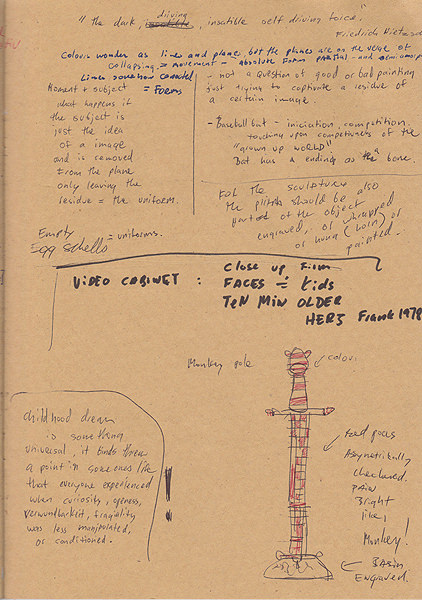 "the dark, driving, insatible self driving force."
Friedrich Nietzsche
Colours wonder as lines and plane, but the planes are on the verge of
collapsing = movement - absolute Form partial - and
Lines somehow connected
Moment + subject = Forms
what happens if
the subject is
just the idea
of a image
and is removed
from the plane
only leaving the
residue = the uniforms.
Empty
Egg Schells = uniforms.
- not a question of good or bad painting
just trying to captivate a residue of
a certain image.
- Baseball bat - iniciation, competition.
touching upon competiveness of the
"grown up world"
Bat has a ending as the bone.
For the sculpture
the plinth should be also
part of the object
engraved, or wrapped
or hung (horn) or
painted.
VIDEO CABINET : Close up Firm
FACES = Kids
TEN MIN OLDER
HERZ Frank 1978
Monkey pole
colour
Childhood dream
is something
universal, it binds threw
a point in someones life
that everyone experienced
when curiosity, openess,
verwundbarkeit, fragiality
was less manipulated,
or conditioned.
Asymetrically
checkered.
pain
Bright
like,
Monkey!
Basin
Engraved.